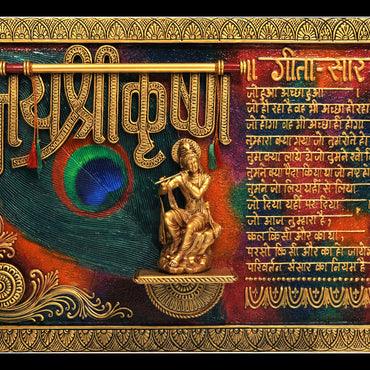 जय श्री कृष्ण
गीता-सार
जो हुआ अच्छा हुआ
जो हो रहा है वह भी अच्छा हो रहा
जो होगा वह भी अच्छा ही होगा
तुम्हारा क्या गया जो तुम रोते हो
तुम क्या लाये थे जो तुमने खो
तुमने क्या पैदा किया था जो नष्ट हो
तुमने जो लिया यहीं से लिया
जो दिया यहीं पर दिया
जो आज तुम्हारा है,
कल किसी और का था,
परसों किसी और का हो जायेगा
परिवर्तन संसार का नियम है